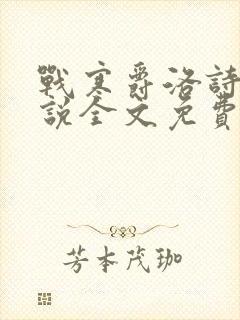 戰寒爵洛詩
說全文免費
芳本茂珈